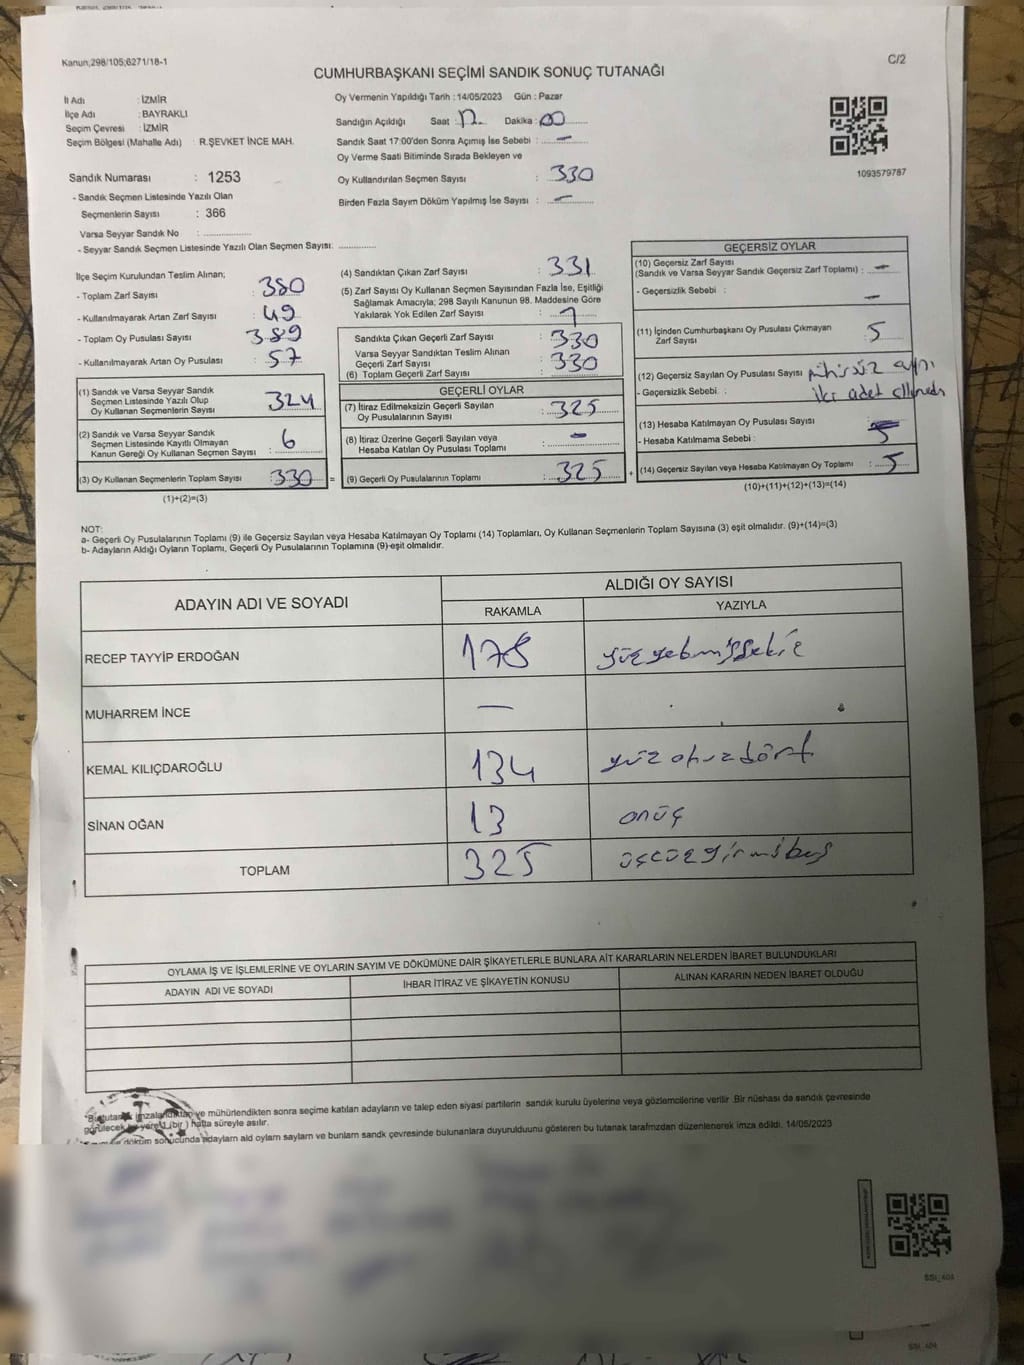 Kanun,298/105;6271/18-1
C/2
CUMHURBAŞKANI SEÇİMİ SANDIK SONUÇ TUTANAĞI
İl Adı : İZMİR
İlçe Adı : BAYRAKLI
Seçim Çevresi : İZMİR
Seçim Bölgesi (Mahalle Adı) : R.ŞEVKET İNCE MAH.
Sandık Numarası : 1253
- Sandık Seçmen Listesinde Yazılı Olan
Seçmenlerin Sayısı : 366
Varsa Seyyar Sandık No :
- Seyyar Sandık Seçmen Listesinde Yazılı Olan Seçmen Sayısı:
Oy Vermenin Yapıldığı Tarih : 14/05/2023 Gün : Pazar
Sandığın Açıldığı Saat : Dakika : 00
Sandık Saat 17:00'den Sonra Açımış İse Sebebi : —
Oy Verme Saati Bitiminde Sırada Bekleyen ve
Oy Kullandırılan Seçmen Sayısı : 330
Birden Fazla Sayım Döküm Yapılmış İse Sayısı : —
1093579787
İlçe Seçim Kurulundan Teslim Alınan;
- Toplam Zarf Sayısı : 380
- Kullanılmayarak Artan Zarf Sayısı : 49
- Toplam Oy Pusulası Sayısı : 389
- Kullanılmayarak Artan Oy Pusulası : 57
(1) Sandık ve Varsa Seyyar Sandık
Seçmen Listesinde Yazılı Olup
Oy Kullanan Seçmenlerin Sayısı : 324
(2) Sandık ve Varsa Seyyar Sandık
Seçmen Listesinde Kayıtlı Olmayan
Kanun Gereği Oy Kullanan Seçmen Sayısı : 6
(3) Oy Kullanan Seçmenlerin Toplam Sayısı : 330 =
(1)+(2)=(3)
(4) Sandıktan Çıkan Zarf Sayısı : 331
(5) Zarf Sayısı Oy Kullanan Seçmen Sayısından Fazla İse, Eşitliği
Sağlamak Amacıyla; 298 Sayılı Kanunun 98. Maddesine Göre
Yakılarak Yok Edilen Zarf Sayısı : 1
Sandıkta Çıkan Geçerli Zarf Sayısı : 330
Varsa Seyyar Sandıktan Teslim Alınan
Geçerli Zarf Sayısı : 330
(6) Toplam Geçerli Zarf Sayısı :
GEÇERLİ OYLAR
(7) İtiraz Edilmeksizin Geçerli Sayılan
Oy Pusulalarının Sayısı : 325
(8) İtiraz Üzerine Geçerli Sayılan veya
Hesaba Katılan Oy Pusulası Toplamı : —
(9) Geçerli Oy Pusulalarının Toplamı : 325 +
GEÇERSİZ OYLAR
(10) Geçersiz Zarf Sayısı
(Sandık ve Varsa Seyyar Sandık Geçersiz Zarf Toplamı) : —
- Geçersizlik Sebebi : —
(11) İçinden Cumhurbaşkanı Oy Pusulası Çıkmayan
Zarf Sayısı : 5
(12) Geçersiz Sayılan Oy Pusulası Sayısı
- Geçersizlik Sebebi : iki adet
(13) Hesaba Katılmayan Oy Pusulası Sayısı
- Hesaba Katılmama Sebebi : 5
(14) Geçersiz Sayılan veya Hesaba Katılmayan Oy Toplamı : 5
(10)+(11)+(12)+(13)=(14)
NOT:
a- Geçerli Oy Pusulalarının Toplamı (9) ile Geçersiz Sayılan veya Hesaba Katılmayan Oy Toplamı (14) Toplamları, Oy Kullanan Seçmenlerin Toplam Sayısına (3) eşit olmalıdır. (9)+(14)=(3)
b- Adayların Aldığı Oyların Toplamı, Geçerli Oy Pusulalarının Toplamına (9) eşit olmalıdır.
ADAYIN ADI VE SOYADI
ALDIĞI OY SAYISI
RAKAMLA YAZIYLA
RECEP TAYYİP ERDOĞAN 178 yüzyetmişsekiz
MUHARREM İNCE —
KEMAL KILIÇDAROĞLU 134 yüzotuzdört
SİNAN OĞAN 13 onüç
TOPLAM 325 üçyüzyirmibeş
OYLAMA İŞ VE İŞLEMLERİNE VE OYLARIN SAYIM VE DÖKÜMÜNE DAİR ŞİKAYETLERLE BUNLARA AİT KARARLARIN NELERDEN İBARET BULUNDUKLARI
ADAYIN ADI VE SOYADI
İHBAR İTİRAZ VE ŞİKAYETİN KONUSU
ALINAN KARARIN NEDEN İBARET OLDUĞU
*Bu tutanak imzalandıktan ve mühürlendikten sonra seçime katılan adayların ve talep eden siyasi partilerin sandık kurulu üyelerine veya gözlemcilerine verilir .Bir nüshası da sandık çevresinde
görülecek bir yere 1 (bir ) hafta süreyle asılır.
döküm sonucunda adayların ald oyların sayların ve bunların sandk çevresinde bulunanlara duyurulduunu gösteren bu tutanak tarafmzdan düzenlenerek imza edildi. 14/05/2023
SSİ_404
SSİ_404